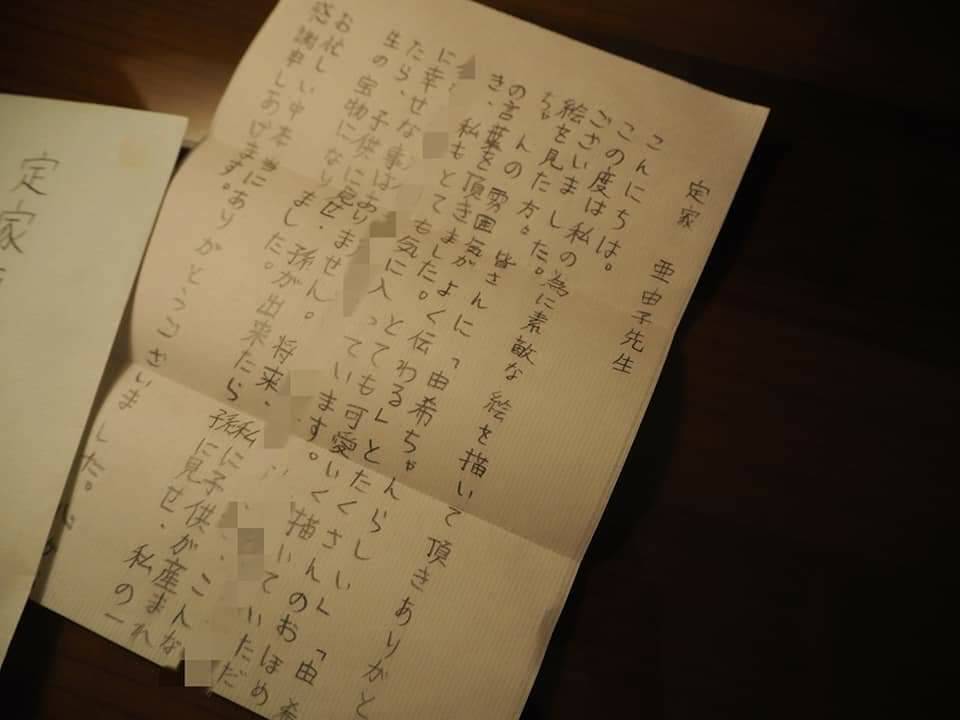 定家 亜由子先生
こんにちは。
この度は私の為に素敵な絵を描いて頂きありがと
ございました。
絵を見た方々 皆さんに「由希ちゃんらしい」「由希
ちゃんの雰囲気がよく伝わる」とたくさんのおほめ
の言葉を頂きました。とっても可愛いく描いていただ
き、私もとても気に入っています。 こんな
に幸せな事はありません。将来、私に子供が産まれ
たら、子供に見せ、孫が出来たら孫に見せ、私の一
生の宝物になりました。
お忙しい中本当にありがとうございました。心か
感謝申しあげます。
定家